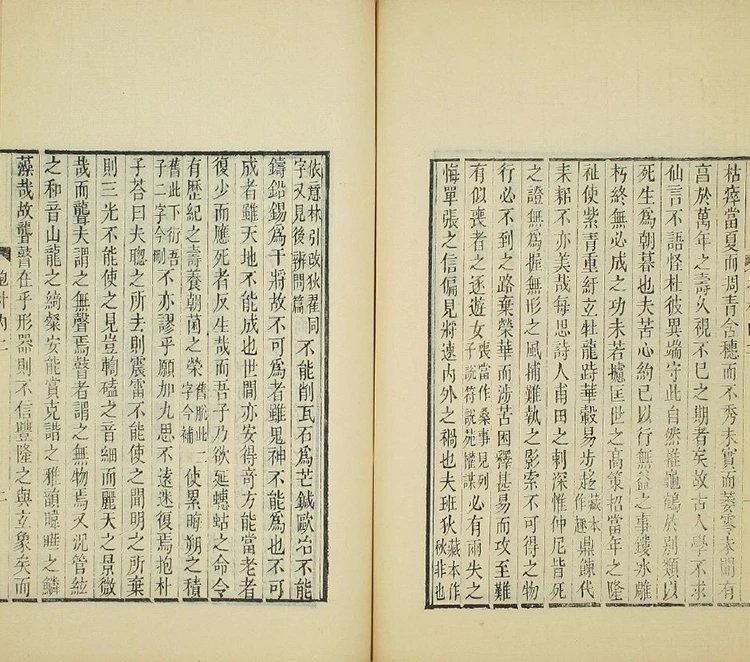 枯瘁當夏而凋青含穗而不秀未實而萎零未聞有
享於萬年之壽久視不已之期者矣故古人學不求
仙言不語怪杜彼異端守此自然推龜鶴於別類以
死生爲朝暮也夫苦心約已以行無益之事鏤冰雕
朽終無必成之功未若攄匡世之高策招當年之隆
祉使紫青重紆玄牡龍跱華轂易步趍藏本作趣鼎餗代
耒耜不亦美哉每思詩人甫田之刺深惟仲尼皆死
之證無爲握無形之風捕難執之影索不可得之物
行必不到之路棄榮華而涉苦困釋甚易而攻至難
有似喪者之逐遊女喪當作桑事見列子說符說苑權謀必有兩失之
悔單張之信偏見將速內外之禍也夫班狄藏本作秋非也
依意林引改狄翟同字又見後辨問篇不能削瓦石爲芒鍼歐冶不能
鑄鉛錫爲干將故不可爲者雖鬼神不能爲也不可
成者雖天地不能成也世間亦安得奇方能當老者
復少而應死者反生哉而吾子乃欲延蟪蛄之命令
有歷紀之壽養朝菌之榮舊脫此二字今補使累晦朔之積
舊此下衍吾子二字今刪不亦謬乎願加九思不遠迷復焉抱朴
子荅曰夫聰之所去則震雷不能使之聞明之所棄
則三光不能使之見豈輷磕之音細而麗天之景微
哉而聾夫謂之無聲焉瞽者謂之無物焉又況管絃
之和音山龍之綺粲安能賞克諧之雅韻暐曄之鱗
藻哉故聾瞽在乎形器則不信豐隆之與玄象矣而